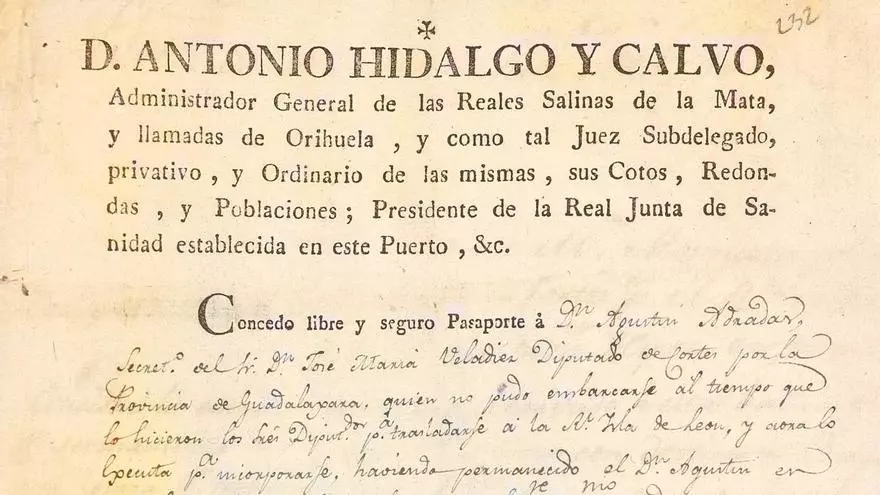 232
D. ANTONIO HIDALGO Y CALVO,
Administrador General de las Reales Salinas de la Mata,
y llamadas de Orihuela , y como tal Juez Subdelegado,
privativo , y Ordinario de las mismas , sus Cotos , Redon-
das , y Poblaciones ; Presidente de la Real Junta de Sa-
nidad establecida en este Puerto , &c.
Concedo libre y seguro Pasaporte à Dn. Agustin Adradas,
Secret.o del Sr. Dn. José Maria Veladiez Diputado de Cortes por la
Provincia de Guadalaxara, quien no pudo embarcarse al tiempo que
lo hicieron los trés Diput.dos p.a trasladarse à la Rl. Isla de Leon, y aora lo
executa p.a incorporarse, haviendo permanecido el Dn. Agustin en